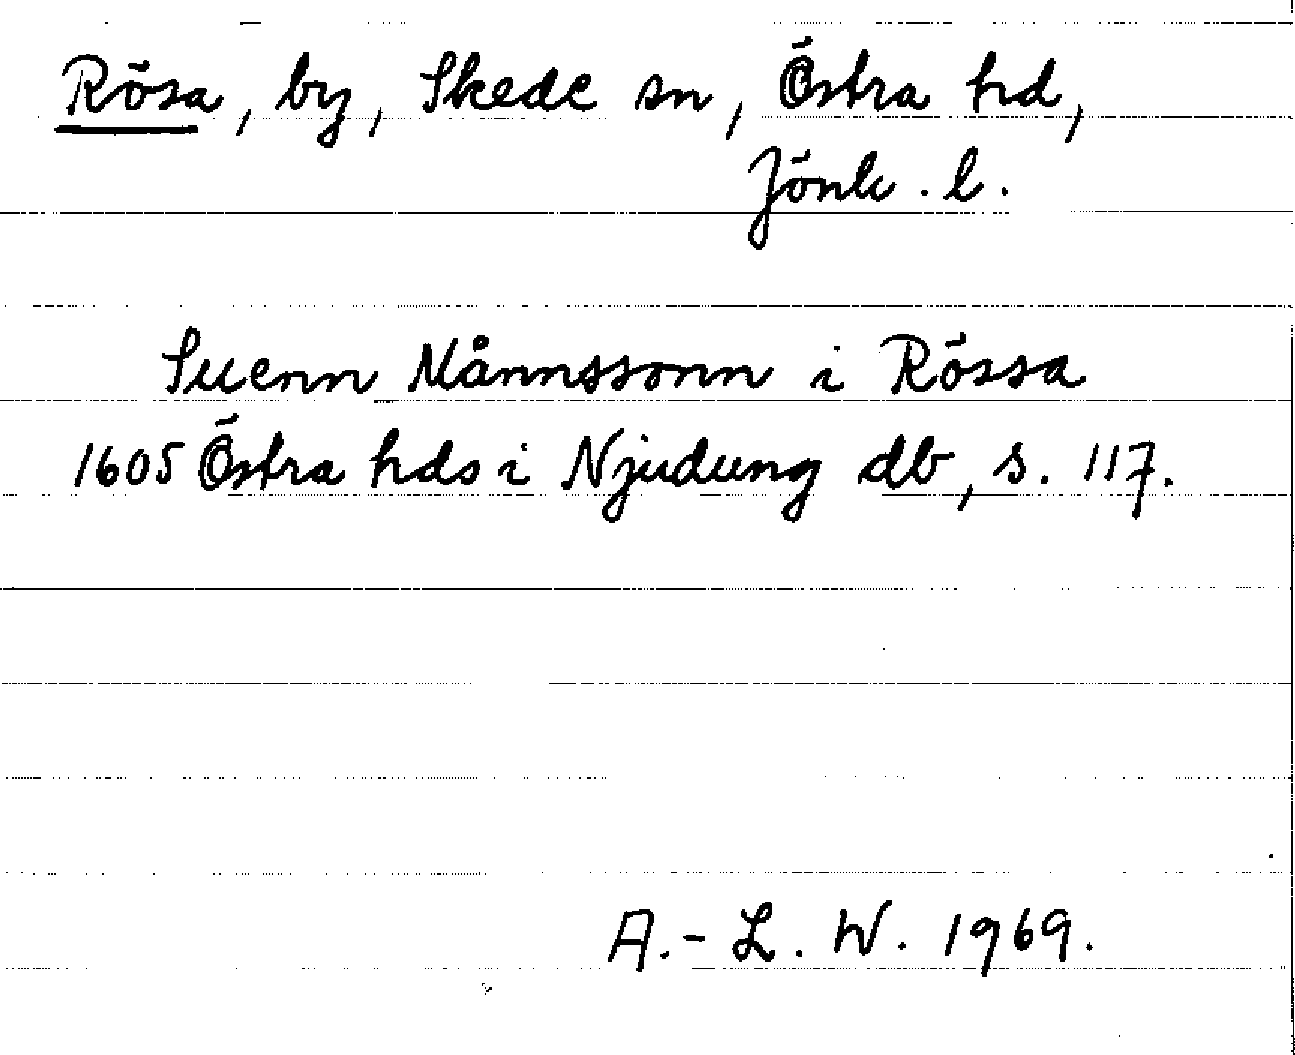 Rösa, by, Skede sn, Östra hd,
Jönk. l.
Suenn Månnssonn i Rössa
1605 Östra hds i Njudung db, s. 117.
A.-L. W. 1969.